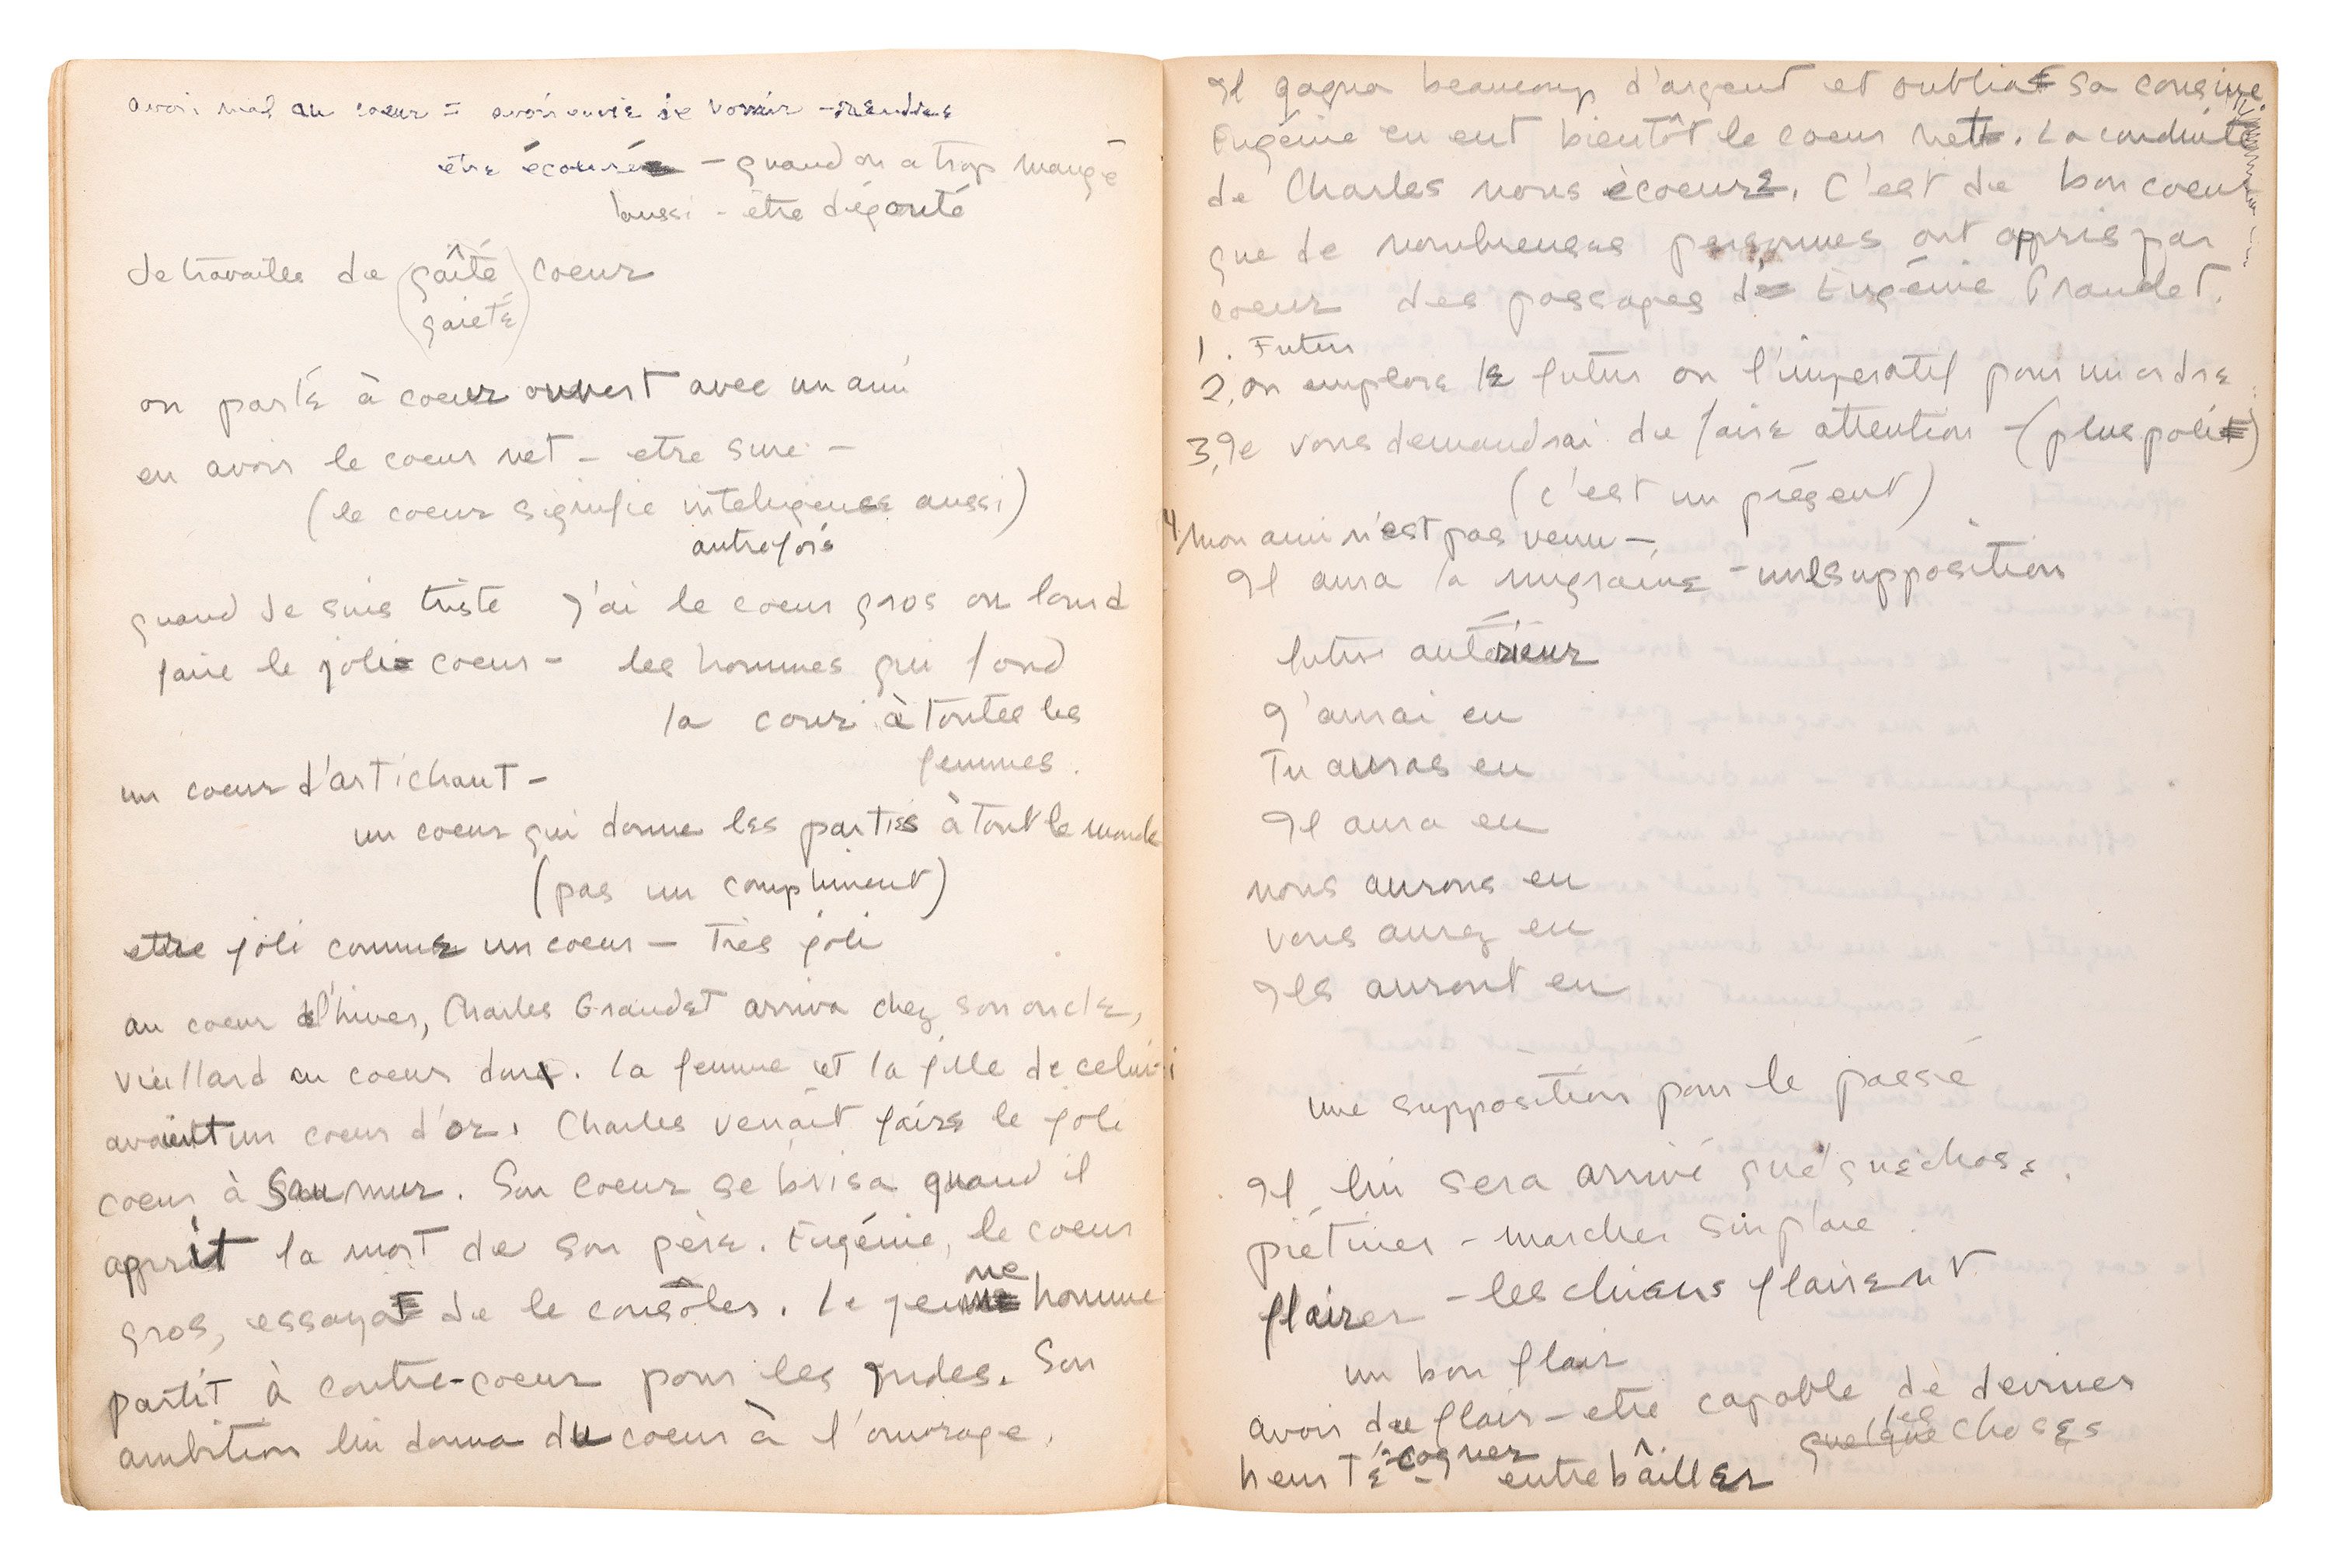 avoir mal au coeur = avoir envie de vomir - rendre
être écoeuré - quand on a trop mangé
aussi - être dégouté
Je travaille de (gaîté) coeur
(gaieté)
on parle à coeur ouvert avec un ami
en avoir le coeur net - etre sure -
(le coeur signifie inteligence aussi)
autrefois
quand Je suis triste J'ai le coeur gros ou lourd
faire le joli coeur - les hommes qui fond
la cour à toutes les
femmes.
un coeur d'artichaut -
un coeur qui donne les parties à tout le monde
(pas un compliment)
etre joli comme un coeur - Très joli
au coeur d'hiver, Charles Grandet arriva chez son oncle,
vieillard au coeur dur. la femme et la fille de celui-i
avaient un coeur d'or. Charles venait faire le joli
coeur à Saumur. Son coeur se brisa quand il
apprit la mort de son père. Eugénie, le coeur
gros, essaya de le consôler. Le jeune homme
partit à contre-coeur pour les Indes. Son
ambition lui donna du coeur à l'ouvrage.
Il gagna beaucoup d'argent et oublia sa cousine.
Eugénie en eut bientôt le coeur net. La conduite
de Charles nous écoeure. C'est de bon coeur
que de nombreuses personnes ont appris par
coeur des passages d'Eugénie Grandet.
1. Futur
2. on emploie le futur ou l'imperatif pour un ordre
3. Je vous demandrai de faire attention - (plus poli)
(c'est un présent)
4 Mon ami n'est pas venu -
Il aura la migraine - une supposition
futur antérieur
J'aurai eu
Tu auras eu
Il aura eu
nous aurons eu
vous aurez eu
Ils auront eu
une supposition pour le passé
Il lui sera arrivé quelque chose.
piétiner - marcher sur place
flairer - les chiens flairent
un bon flair
avoir du flair - etre capable de deviner
quelque les choses
heurté - cogner entrebâiller